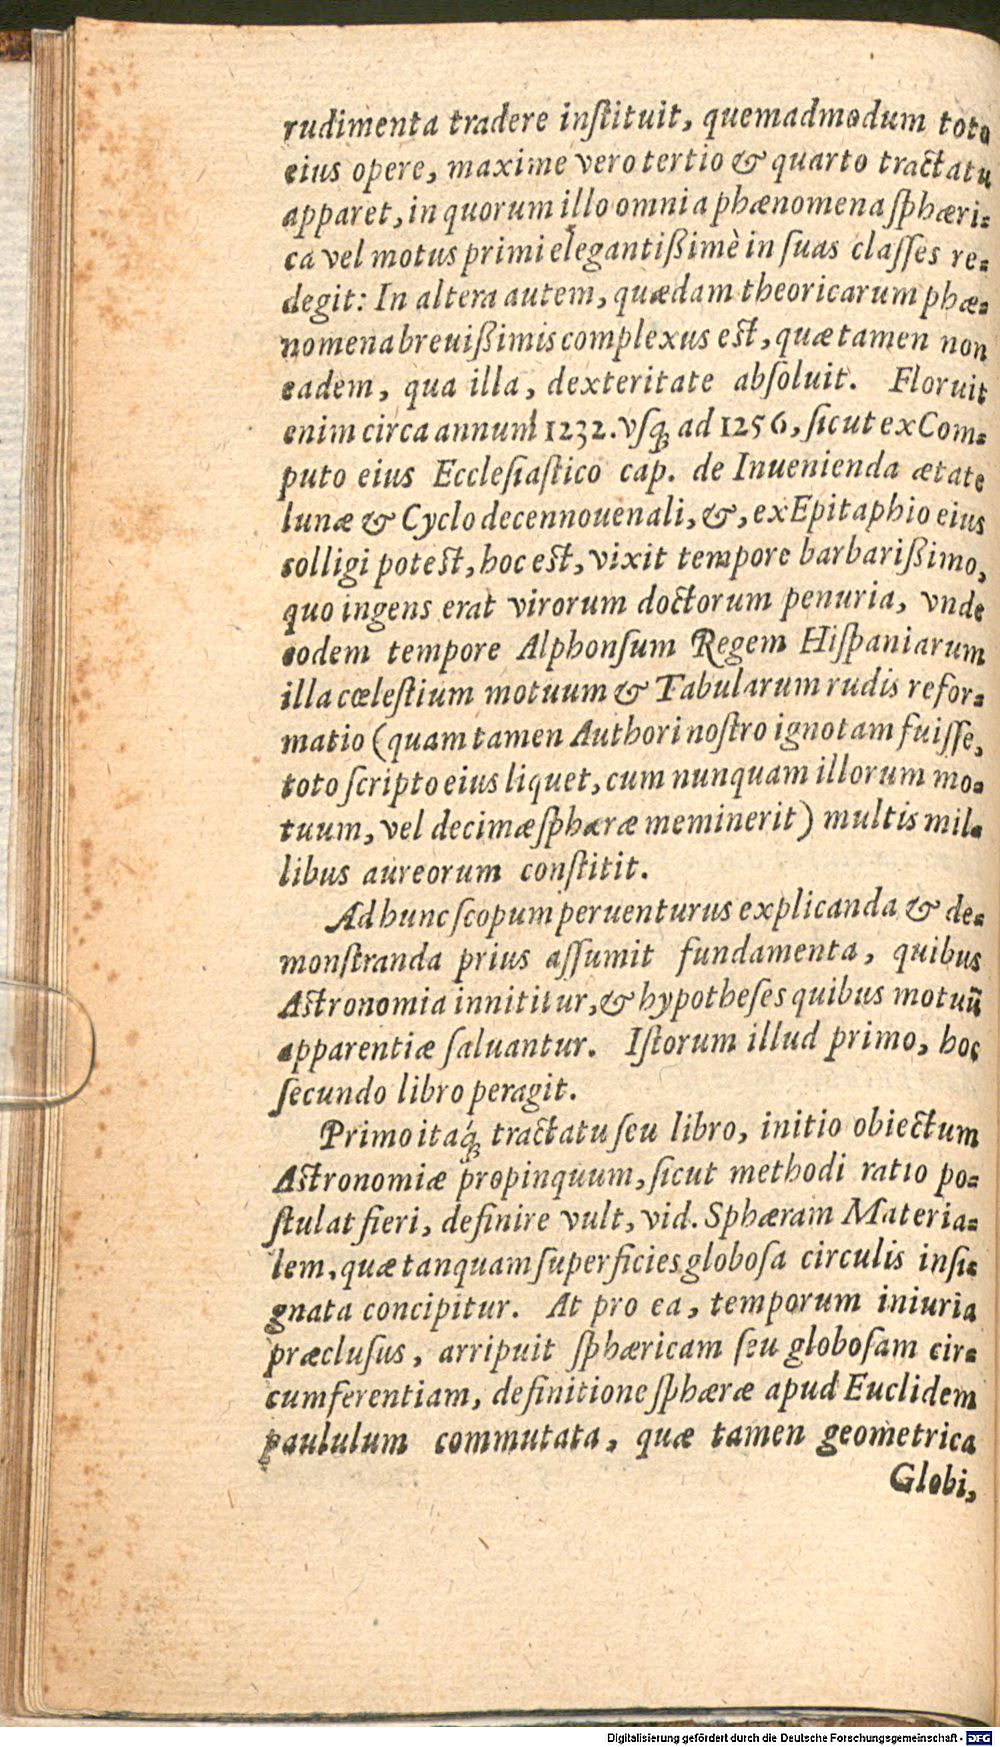 rudimenta tradere inſtituit, quemadmodum toto
eius opere, maxime vero tertio & quarto tractatu
apparet, in quorum illo omnia phænomena ſphæri-
ca vel motus primi elegantißimè in ſuas claſſes re-
degit: In altera autem, quædam theoricarum phæ-
nomena breuißimis complexus est, quæ tamen non
eadem, qua illa, dexteritate abſoluit. Floruit
enim circa annum 1232. vſq́; ad 1256, ſicut ex Com-
puto eius Eccleſiaſtico cap. de Inuenienda ætate
lunæ & Cyclo decennouenali, &, ex Epitaphio eius
colligi potest, hoc est, vixit tempore barbarißimo,
quo ingens erat virorum doctorum penuria, vnde
eodem tempore Alphonſum Regem Hiſpaniarum
illa cœleſtium motuum & Tabularum rudis refor-
matio (quam tamen Authori noſtro ignotam fuiſſe,
toto ſcripto eius liquet, cum nunquam illorum mo-
tuum, vel decimæ ſphæræ meminerit) multis mil-
libus aureorum conſtitit.
Ad hunc ſcopum peruenturus explicanda & de-
monſtranda prius aſſumit fundamenta, quibus
Astronomia innititur, & hypotheſes quibus motuū
apparentiæ ſaluantur. Iſtorum illud primo, hoc
ſecundo libro peragit.
Primo itaq́; tractatu ſeu libro, initio obiectum
Astronomiæ propinquum, ſicut methodi ratio po-
ſtulat fieri, definire vult, vid. Sphæram Materia-
lem, quæ tanquam ſuperficies globoſa circulis inſi-
gnata concipitur. At pro ea, temporum iniuria
præcluſus, arripuit ſphæricam ſeu globoſam cir-
cumferentiam, definitione ſphæræ apud Euclidem
paululum commutata, quæ tamen geometrica
Globi,
Digitalisierung gefördert durch die Deutsche Forschungsgemeinschaft - DFG